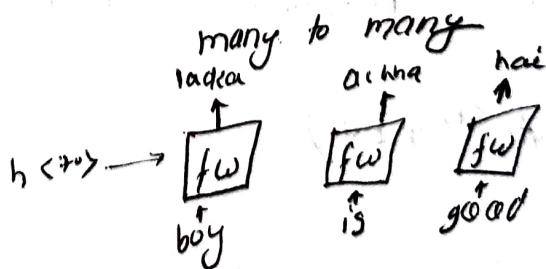 many to many
ladka achha hai
h <t=0> fw fw fw
boy is good